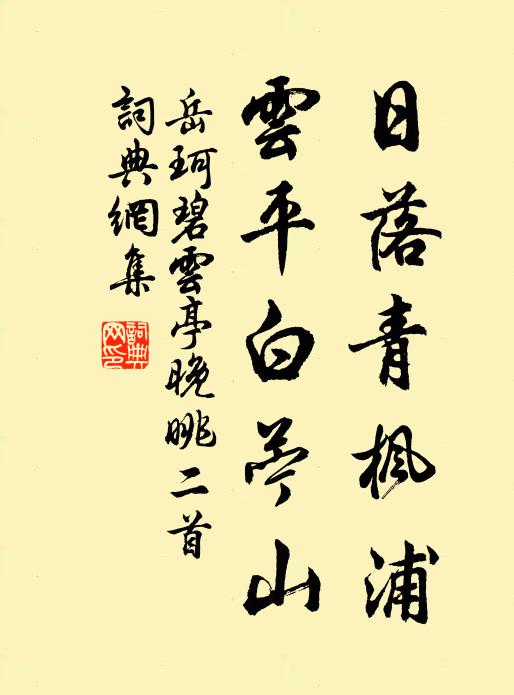 日落青楓浦
雲平白苧山
岳珂碧雲亭晚眺二首
詞典網集
詞典网印